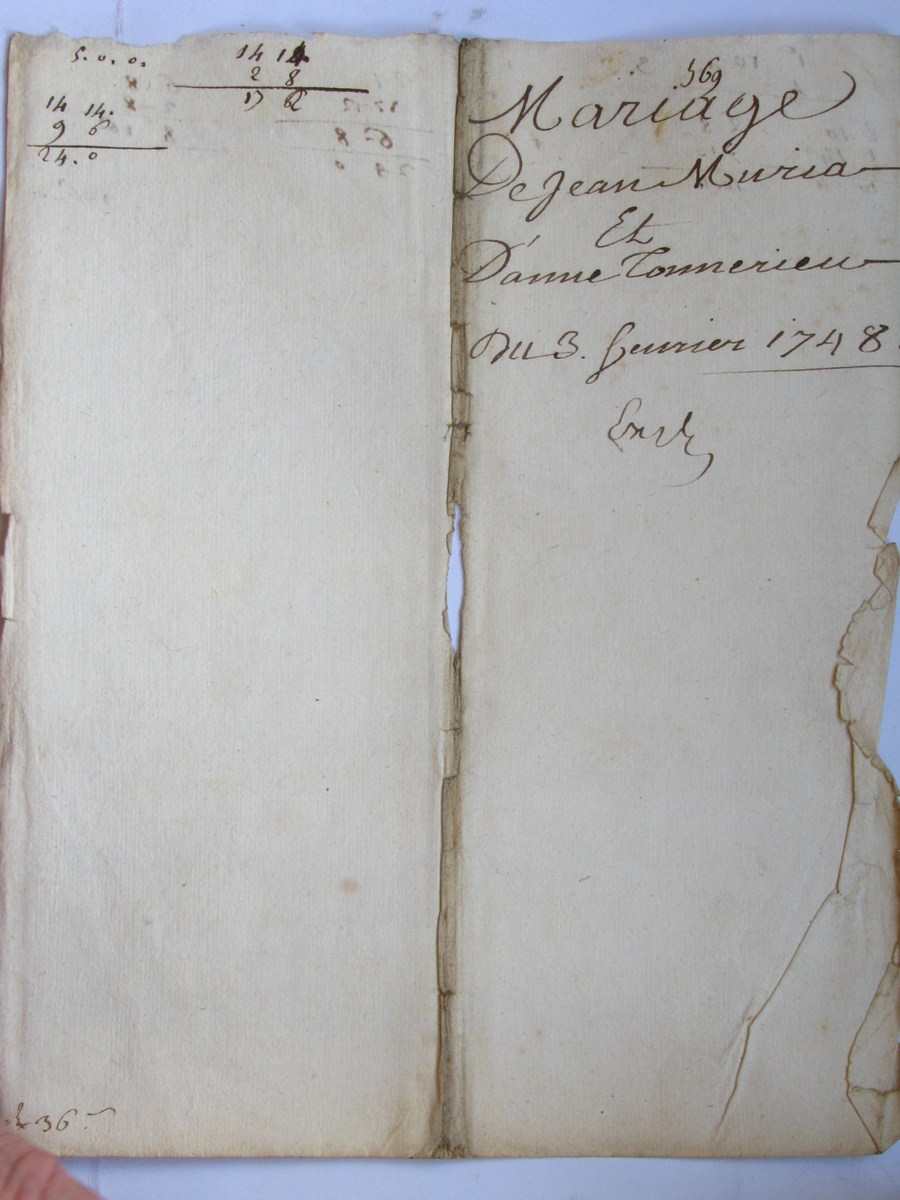 5. 0. 0.
14 14
2 8
17 2
14 14.
9 6
24. 0
569
Mariage
De Jean Muria
Et
D'anne Tonnerieu
Du 3. fevrier 1748.
36